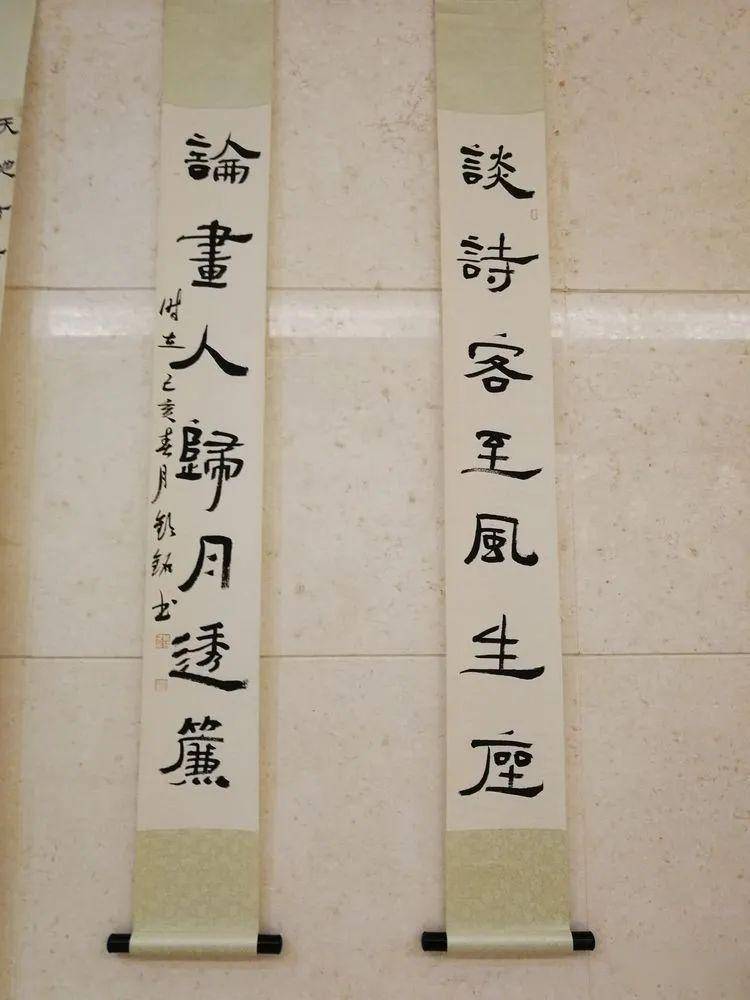 談詩客至風生座
論畫人歸月透簾
時在己亥春月 銘書
天地